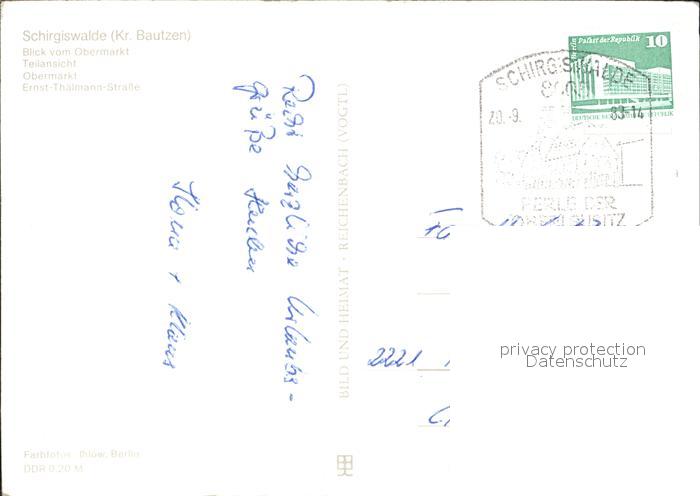 Schirgiswalde (Kr. Bautzen)
Blick vom Obermarkt
Teilansicht
Obermarkt
Ernst-Thälmann-Straße
Recht herzliche Urlaubs-
grüße
+ Klaus
BILD UND HEIMAT · REICHENBACH (VOGTL)
Berlin Palast der Republik
10
DEUTSCHE DEMOKRATISCHE REPUBLIK
SCHIRGISWALDE
20.-9. 83-14
PERLE DER
OBERLAUSITZ
2221
privacy protection
Datenschutz
Farbfotos: Ihlow, Berlin
DDR 0,20 M